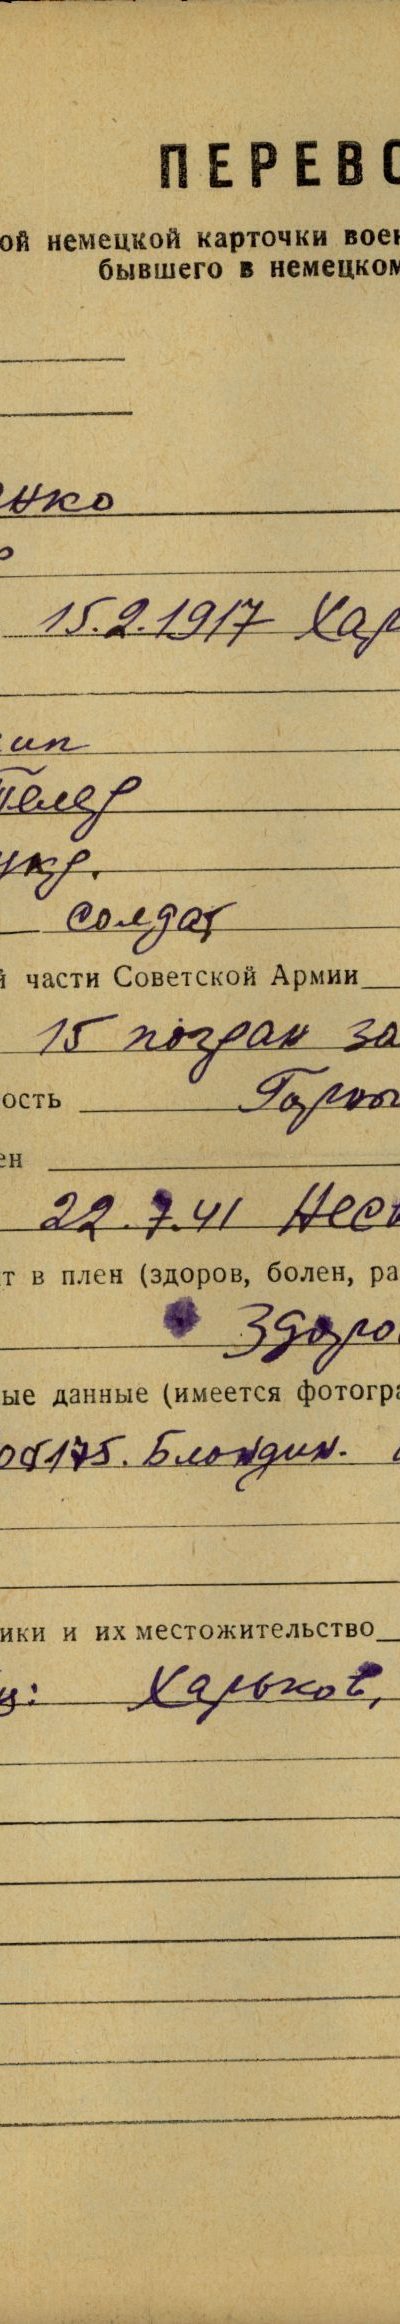 ПЕРЕВО
ой немецкой карточки воен
бывшего в немецком
нко
р
15.2.1917 Хар
ип
укр.
солдат
й части Советской Армии
15 погран за
ость Горно
ен
22.7.41 Нес
т в плен (здоров, болен, ра
Здоро
ые данные (имеется фотогра
175. Блондин.
ики и их местожительство
ц: Харьков,